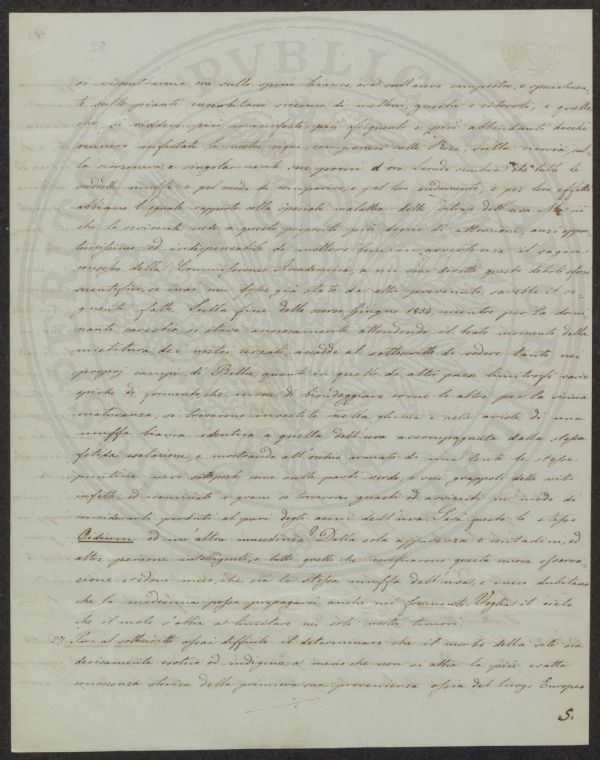 si riscontrarono ora sulla spina bianca, ora sull'acero campestre, e specialmen-
te sulle piante cucurbitacee siccome di melloni, zucche e citrioli, e quelle
che si viddero più manifeste, più frequenti e più abbondanti dacche
vennero infestate le nostre vigne, comparvero sulle Rose, sulla vicenda, sul-
la scorzonera, e singolarmente sui pomi d'oro. Laonde sembra che tutte le
suddette muffe e pel modo di comparire, e pel loro andamento, e per loro effetto
abbiano l'eguale rapporto colla speciale malattia delle viti e dell'uva. Ma ciò
che lo scrivente crede a questo proposito più degno di attenzione, anzi oppor-
tunissimo ed indispensabile di mettere in avvertenza il sagace
consesso della Commissione Accademica, a cui sono diretti questi deboli sforzi
scientifici, se mai non fosse già stato da altri prevenuto, sarebbe il se-
guente fatto. Sulla fine dello scorso Giugno 1853, mentre per la domi-
nante carestia si stava ansiosamente attendendo il beato momento della
mietitura de' nostri cereali, accadde al sottoscritto di vedere tanto nei
proprj campi di Robbio, quanto in quelli di altri paesi limitrofi varie
spiche di formento, che invece di biondeggiare come le altre per la vicina
maturanza, si trovarono investite nella gluma e nelle ariste di una
muffa bianca identica a quella dell'uva accompagnata dalla stessa
fetida esalazione, e mostrando all'occhio armato di una lente le stesse
puntine nere come sulle parti verdi, e sui grappoli delle viti
infette, ed esaminati i grani si trovarono guasti ed avvizziti in modo di
considerarli perduti al pari degli acini dell'uva. Sarà questo lo stesso
Oidium od un altra mucedinea? Dalla sola apparenza i contadini, ed
altre persone intelligenti, e tutti quelli che verificarono questa nuova osserva-
zione credono meco, che sia la stessa muffa dell'uva, e meco dubitano
che la medesima possa propagarsi anche nei formenti. Voglia il cielo
che il male s'abbia a limitare nei soli nostri timori.
27. Pare al sottoscritto assai difficile il determinare che il morbo della vite sia
decisamente esotico od indigeno, a meno che non si abbia la più esatta
conoscenza storica della primiera sua provenienza ossia del luogo Europeo
5.